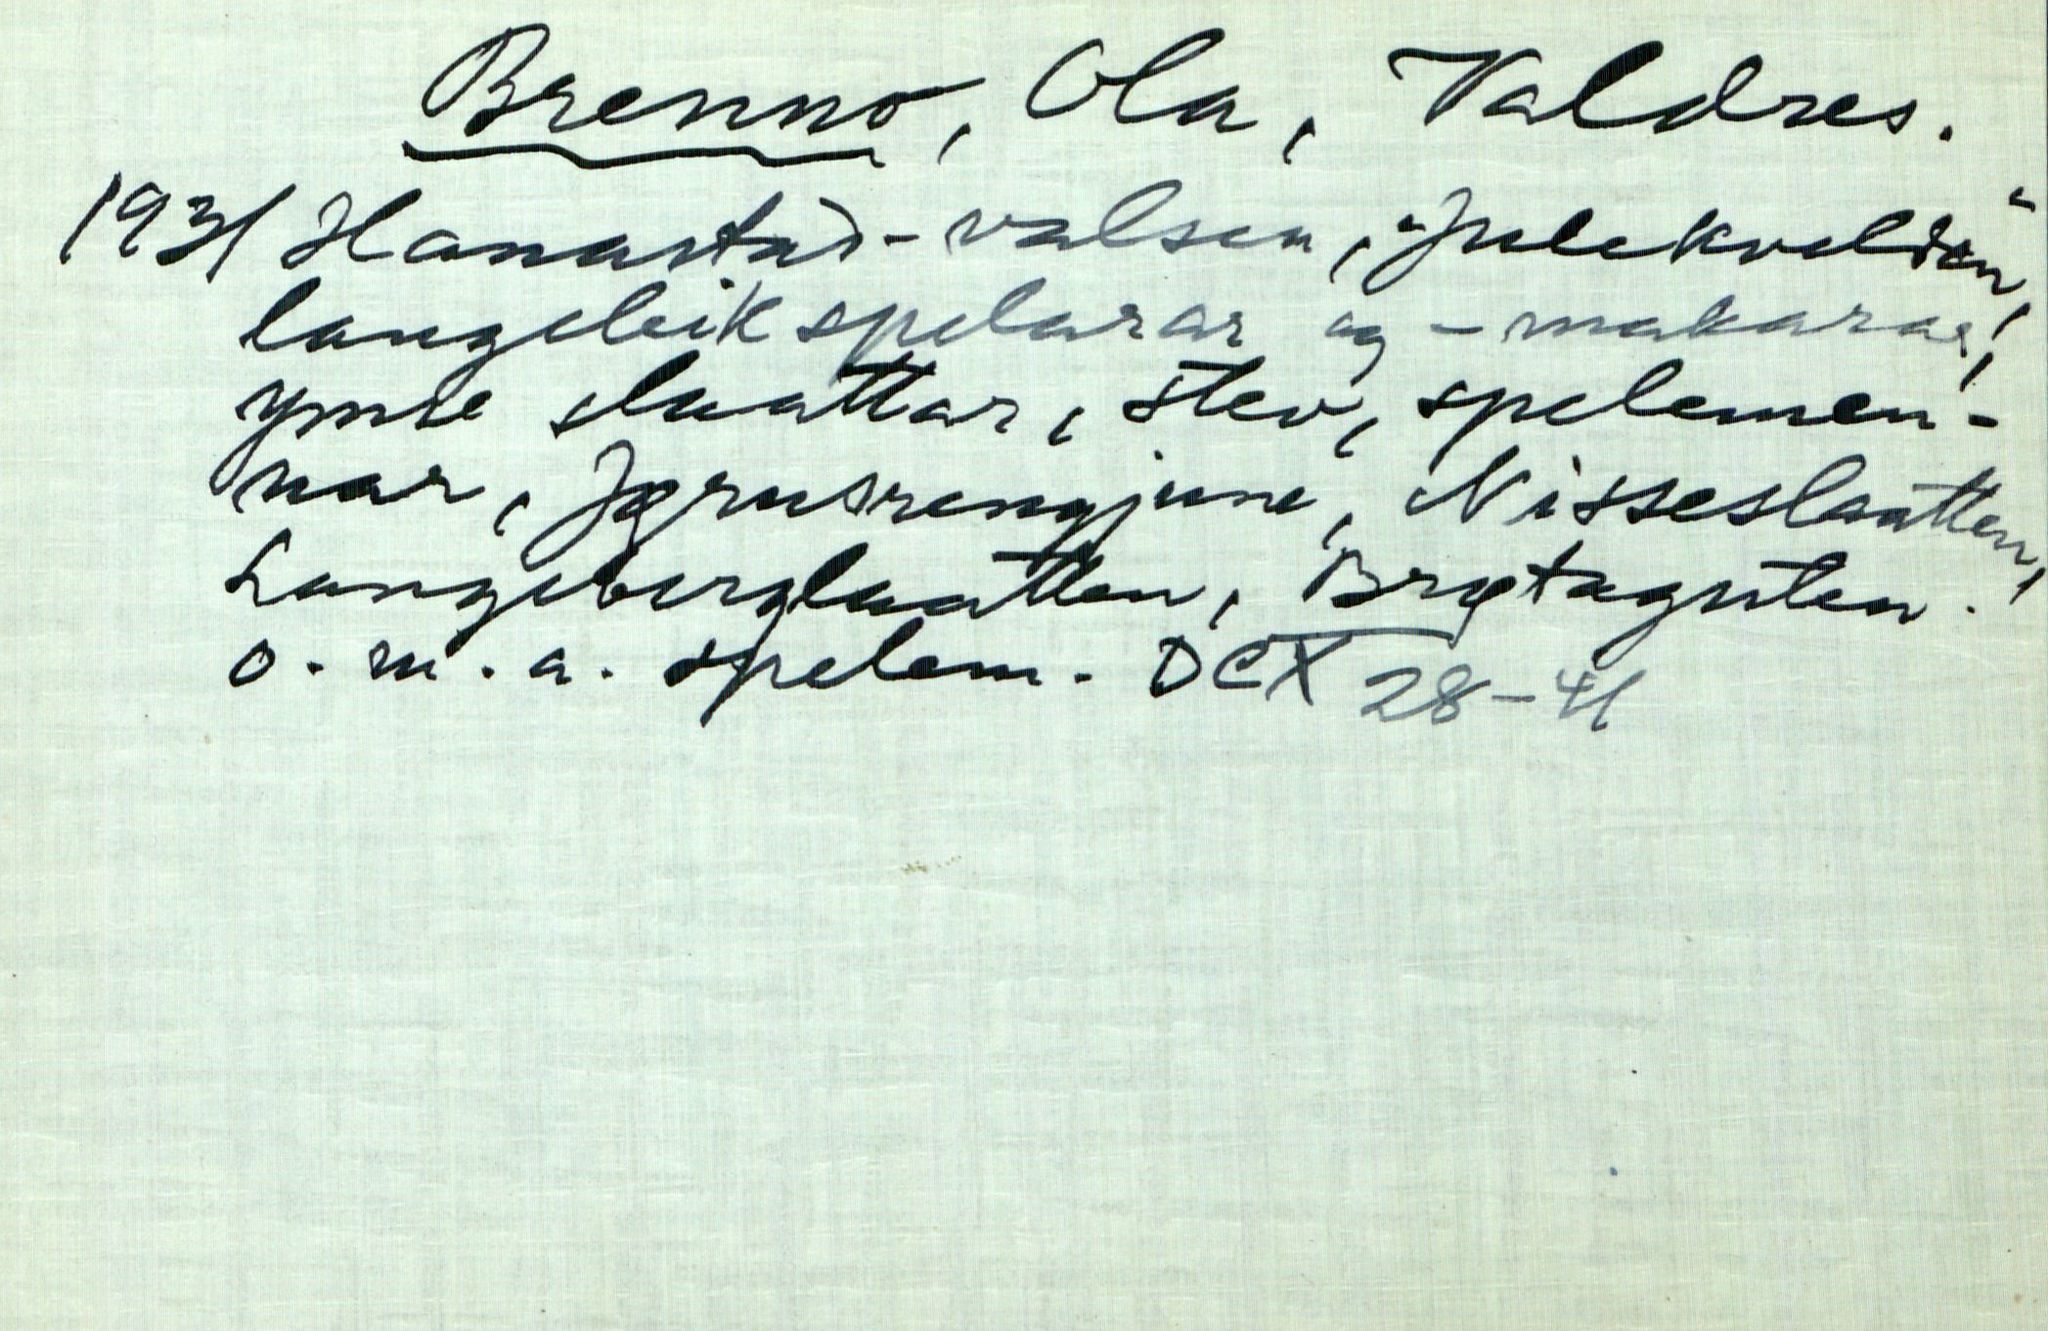 Brenno, Ola, Valdres.
1931 Hanastad-valsen, "Julekvelden",
langeleikspelarar og -makarar,
ymse slaattar, stev, spelemen-
nar, Jørusrengjune, Nisseslaatten,
Langebergslaatten, Brøtaguten.
o.m.a. spelem. DCX 28-41